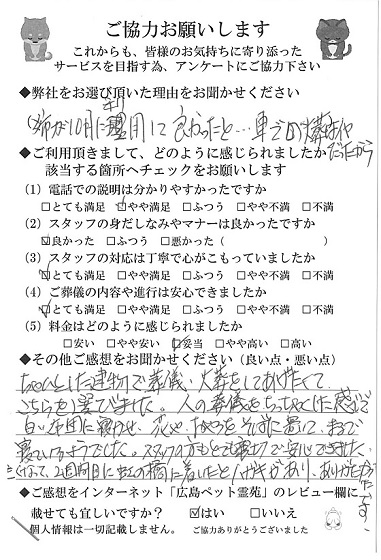 ご協力お願いします
これからも、皆様のお気持ちに寄り添った
サービスを目指す為、アンケートにご協力下さい
◆弊社をお選び頂いた理由をお聞かせください
姉が10月に利用して良かったと…車での火葬はいやだったから
◆ご利用頂きまして、どのように感じられましたか
該当する箇所へチェックをお願いします
(1)電話での説明は分かりやすかったですか
□とても満足 ☑やや満足 □ふつう □やや不満 □不満
(2)スタッフの身だしなみやマナーは良かったですか
☑良かった □ふつう □悪かった( )
(3)スタッフの対応は丁寧で心がこもっていましたか
☑とても満足 □やや満足 □ふつう □やや不満 □不満
(4)ご葬儀の内容や進行は安心できましたか
☑とても満足 □やや満足 □ふつう □やや不満 □不満
(5)料金はどのように感じられましたか
□安い □やや安い ☑妥当 □やや高い □高い
◆その他ご感想をお聞かせください(良い点・悪い点)
ちゃんとした建物で葬儀、火葬をしてあげたくて
こちらを選びました。人の葬儀をちっちゃくした感じで
白い布団に寝かせ、花や、おやつをそばに置いて、まるで
寝ているようでした。スタッフの方もとても親切で安心できました。
亡くなって、2週間目に虹の橋に着いたとハガキがあり、ありがたかったです。
◆ご感想をインターネット「広島ペット霊苑」のレビュー欄に
載せても宜しいですか? ☑はい □いいえ
個人情報は一切記載しません。 ご協力ありがとうございました